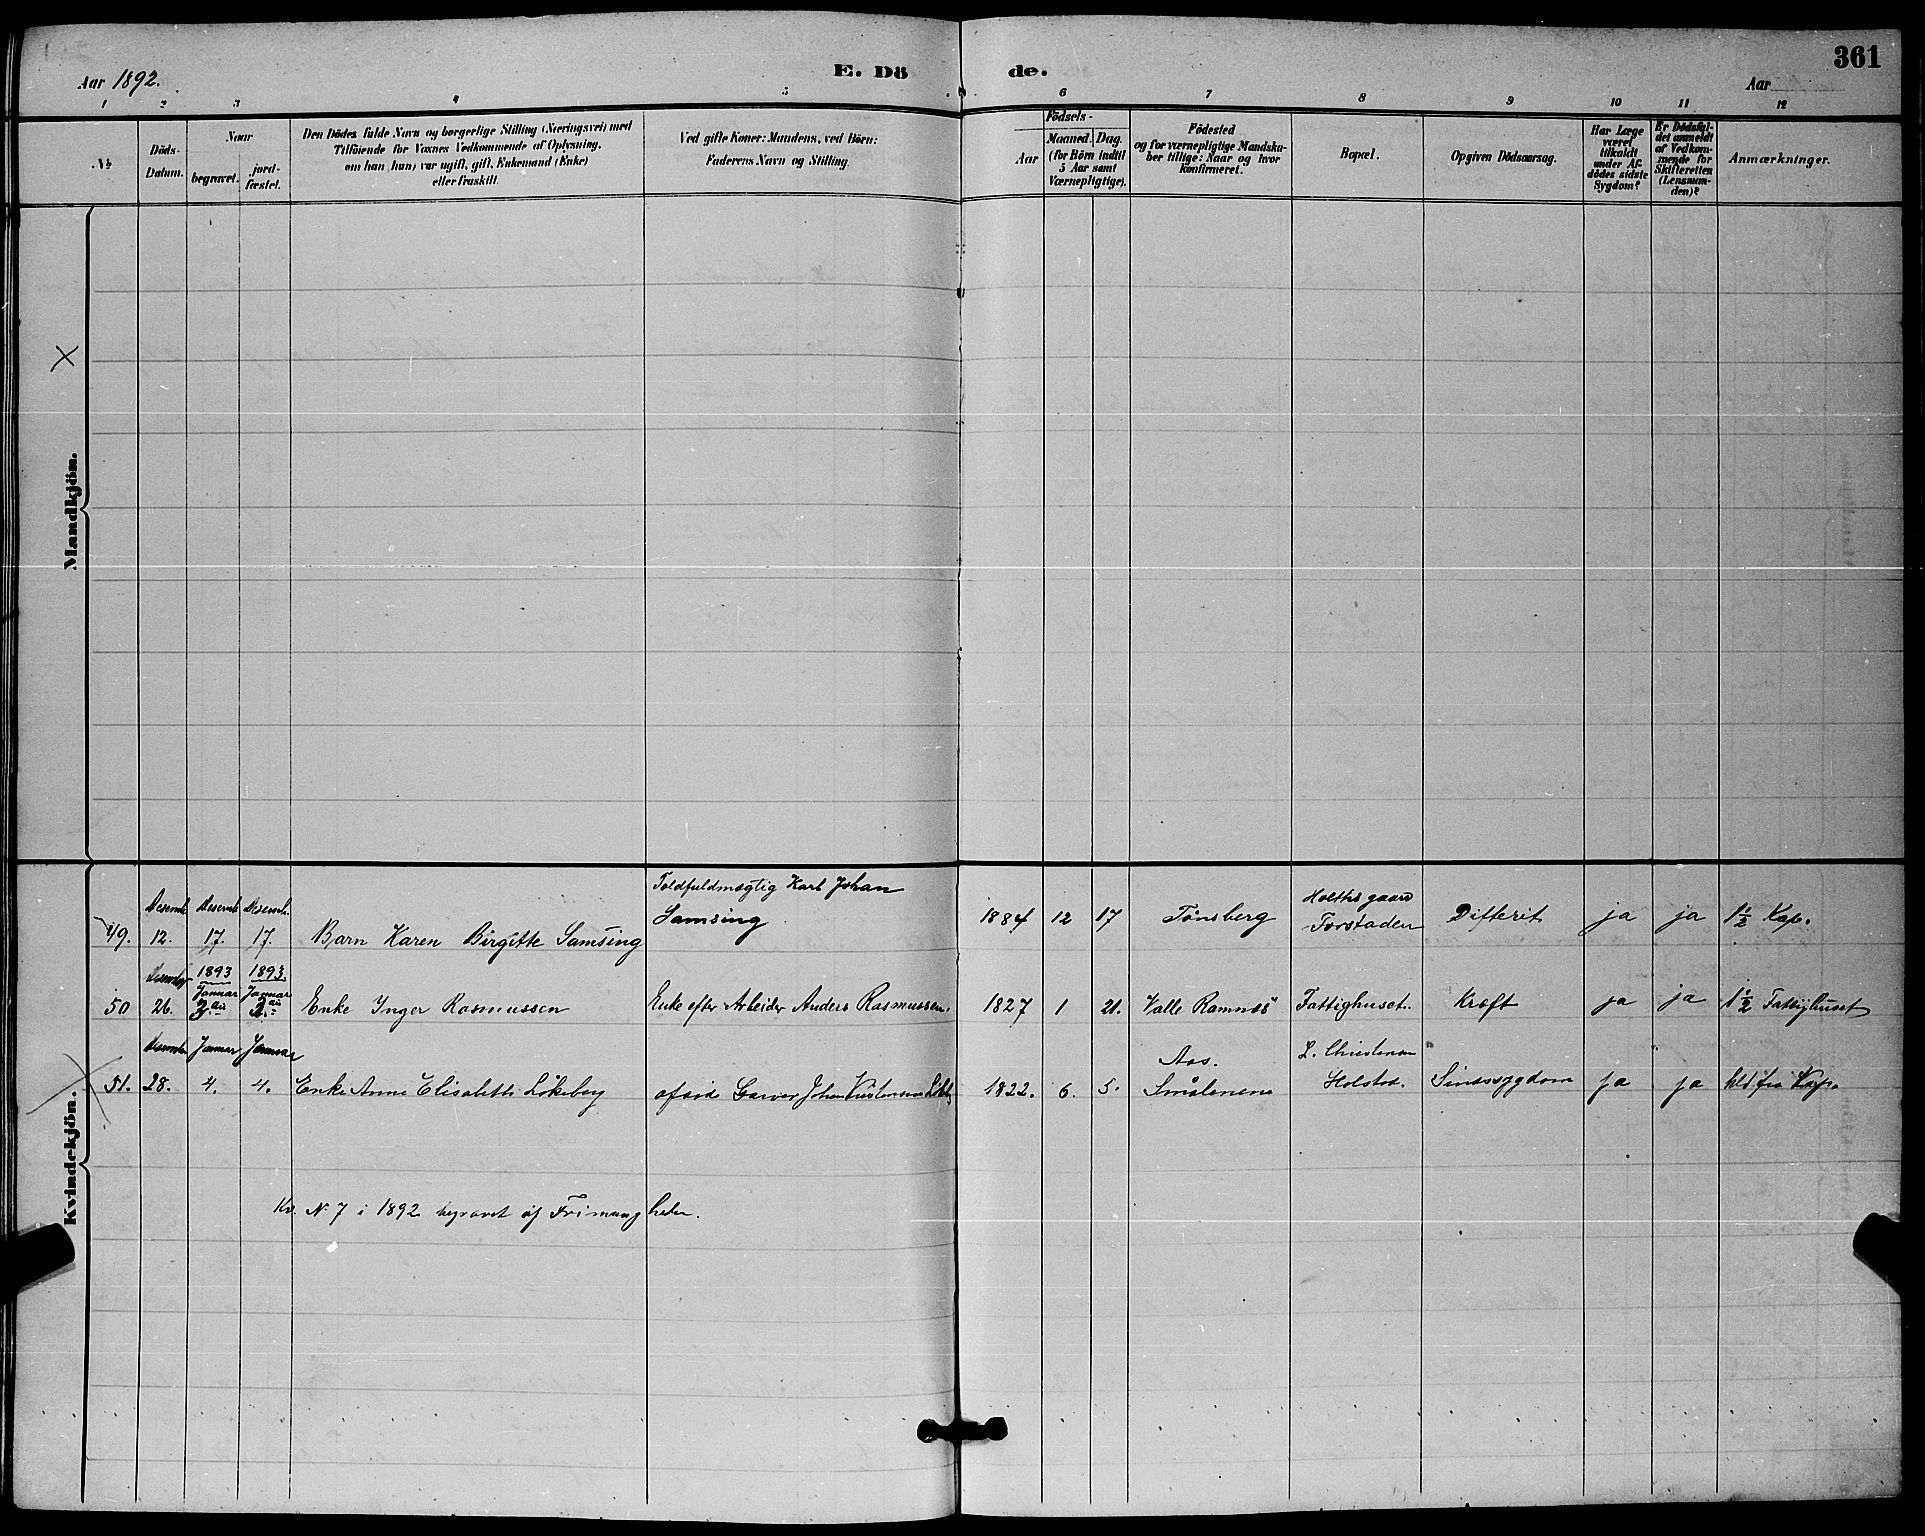 361
Aar 1892.
E. Dö de.
Aar
1 2 3 4 5 6 7 8 9 10 11 12
№
Döds-
Datum.
Naar
begravet.
jord-
fæstet.
Den Dödes fulde Navn og borgerlige Stilling (Næringsvei) med
Tilföiende for Voxnes Vedkommende af Oplysning,
om han (hun) var ugift, gift, Enkemand (Enke)
eller fraskilt.
Ved gifte Koner: Mandens, ved Börn:
Faderens Navn og Stilling.
Födsels-
Aar
Maaned.
Dag.
(for Börn indtil
5 Aar samt
Værnepligtige).
Födested
og for værnepligtige Mandska-
ber tillige: Naar og hvor
konfirmeret.
Bopæl.
Opgiven Dödsaarsag.
Har Læge
været
tilkaldt
under Af-
dödes sidste
Sygdom?
Er Dödsfal-
det anmeldt
af Vedkom-
mende for
Skifteretten
(Lensman-
den)?
Anmærkninger.
Mandkjön.
Kvindekjön.
Desemb Desemb Desemb. Toldfuldmægtig Karl Johan
49. 12. 17. 17. Barn Karen Birgitte Samsing Samsing 1884 12 17 Tönsberg Forstaden Differit ja ja 1½ Kap.
1893 1893.
Desember Januar Januar
50 26. 2den 2den Enke Inger Rasmussen Enke efter Arbeider Anders Rasmussen. 1827 1 21. Valle Ramnæs Fattighuset. Kræft ja ja 1½ Fattighuset
Desember Januar Januar Aas.
51. 28. 4. 4. Enke Anne Elisabeth Lökeberg afdöde Garver Johan 1822. 6. 5. Smålenene Holstad. Sindssygdom ja ja fra Kap.
Kv. N. 7 i 1892 begravet af Frimenigheden.